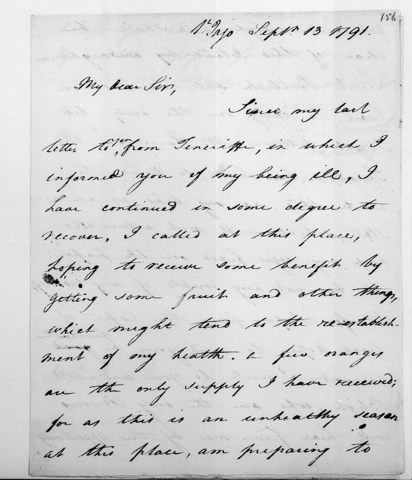 156
St. Jago Septr 13 1791.
My dear Sir,
Since my last
letter to you, from Teneriffe, in which I
informed you of my being ill, I
have continued in some degree to
recover, I called at this place,
hoping to receive some benefit by
getting some fruit and other things,
which might tend to the re-establish-
ment of my health. A few oranges
are the only supply I have received;
for as this is an unhealthy season
at this place, am preparing to